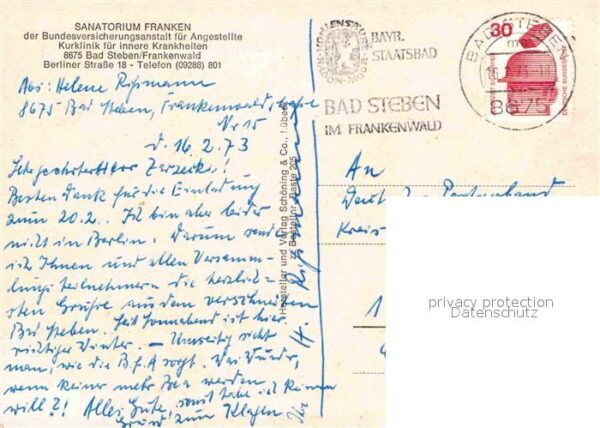 SANATORIUM FRANKEN
der Bundesversicherungsanstalt für Angestellte
Kurklinik für innere Krankheiten
8675 Bad Steben/Frankenwald
Berliner Straße 18 - Telefon (09288) 801
Abs: Helene Rißmann
8675 Bad Steben, Frankenwald,
Nr 15
d. 16.2.73
Sehr geehrter Herr
Besten Dank für die Einladung
zum 20.2. Ich bin aber leider
nicht in Berlin. Darum sende
ich Ihnen und allen Versamm-
lungsteilnehmern die herzlich-
sten Grüße aus dem verschneiten
Bad Steben. Seit Sonnabend ist hier
richtiger Winter. –
man, wie die B.f.A sorgt. Was Wunder,
wenn keiner mehr Bea werden
will?! Alles Gute, sonst habe ich keinen
Grund zum Klagen Ihre
H. Rißmann
Hersteller und Verlag Schöning & Co., Lübeck
BAYR.
STAATSBAD
BAD STEBEN
IM FRANKENWALD
BAD STEBEN
8675
30
DEUTSCHE BUNDESPOST
An
Kreis
1
privacy protection
Datenschutz